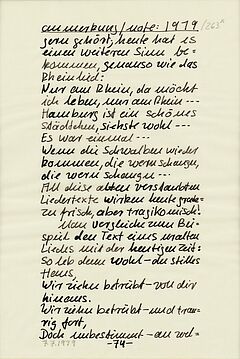 anmerkung/note: 1979 /263a
gern gehört, heute hat es
einen weiteren Sinn be-
kommen, genauso wie das
Rheinlied:
Nur am Rhein, da möcht
ich leben, nur am Rhein ---
Hamburg ist ein schönes
Städtchen, siehste wohl ---
Es war einmal ---
Wenn die Schwalben wieder
kommen, die wern schaugn,
die wern schaugn ---
All diese alten verstaubten
Liedertexte wirken heute grade-
zu frisch, aber tragikomisch!
Man vergleiche zum Bei-
spiel den Text eines uralten
Liedes mit der heutigen Zeit:
So leb denn wohl - du stilles
Haus,
Wir ziehn betrübt - von dir
hinaus.
Wir ziehn betrübt - und trau-
rig fort,
Doch unbestimmt - an wel-
7.7.1979 -74-